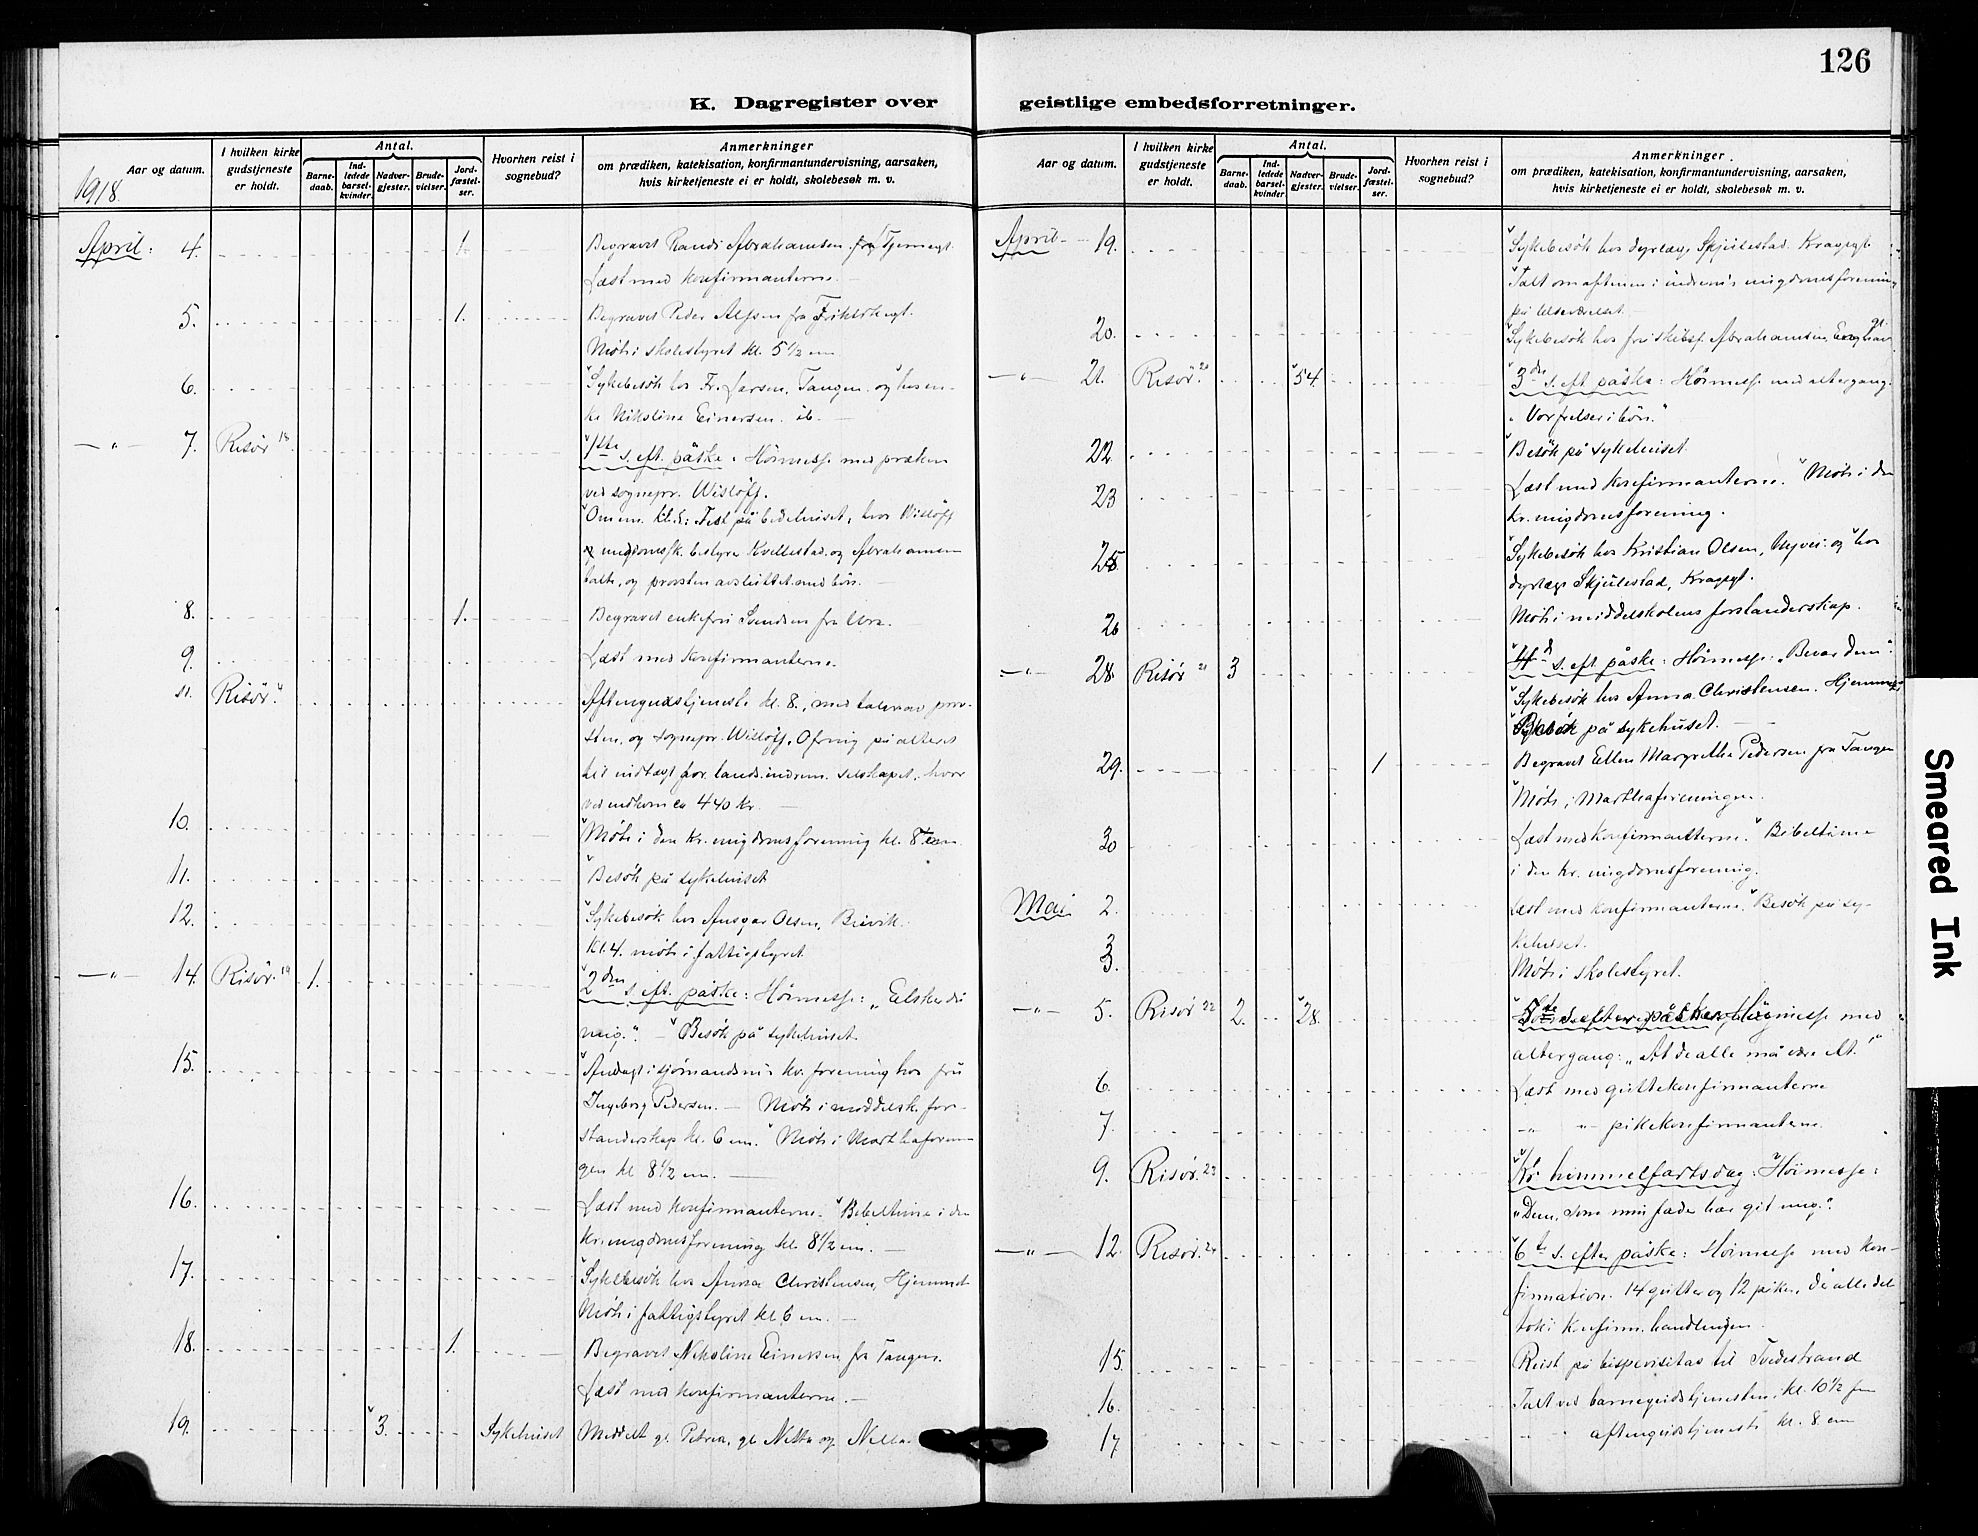 126
K. Dagregister over geistlige embedsforretninger.
Aar og datum.
I hvilken kirke gudstjeneste er holdt.
Antal.
Barnedaab.
Indledede barselkvinder.
Nadvergjester.
Brudevielser.
Jordfæstelser.
Hvorhen reist i sognebud?
Anmerkninger
om prædiken, katekisation, konfirmantundervisning, aarsaken,
hvis kirketjeneste ei er holdt, skolebesøk m. v.
1918.
April: 4. 1. Begravet Randi Abrahamsen fra Tjernsgt.
Læst med konfirmanterne.
5. 1. Begravet Peder fra
Møte i skolestyret kl. 5 1/2 em
6. Sykebesök hos Fr. Larsen, Tangen og hos en-
ke Nikoline Einersen. ib.
-"- 7. Risør 18 1ste s. eft. påske. Höimesse med præken
ved sognepr. Wislöff.
Om em. kl. : Fest på bedehuset, hvor Wislöff
ungdomssk. bestyrer Kvellestad og Abrahamsen
talte, og provsten avsluttet med bön.
8. 1. Begravet enkefru Svendsen fra Ura.
9. Læst med konfirmanterne.
11. Risør. Aftengudstjeneste kl. 8, med taler av prov-
sten, og sognepr. Wislöff. Ofring på alteret
til indtægt for landsindrem. selskapet, hvor
ved indkom ca 440 kr.
10. Møte i den kr. ungdomsforening kl. 8 em
11. Besök på sykehuset
12. Sykebesök hos Ansgar Olsen, Buvik.
Kl. 4. møte i fattigstyret
-"- 14. Risør. 19 1. 2den s. eft. påske: Höimesse: „Elsker du
mig". - Besök på sykehuset.
15. Andagt i sjömandsmis. kv. forening hos fru
Ingeborg Pedersen. - Møte i middelsk. for-
standerskap kl. 6 em. Møte i Marthaforenin-
gen kl 8 1/2 em.
16. Læst med konfirmanterne. Bibeltime i den
kr. ungdomsforening kl. 8 1/2 em.
17. Sykebesök hos Anna Christensen, Hjemmet
Møte i fattigstyret kl. 6 em.
18. 1. Begravet Nikoline Einersen fra Tangen.
Læst med konfirmanterne.
19. 3. Sykehuset Meddelt gl. Petrea, gl. Netta og Nella.
Aar og datum.
I hvilken kirke gudstjeneste er holdt.
Antal.
Barnedaab.
Indledede barselkvinder.
Nadvergjester.
Brudevielser.
Jordfæstelser.
Hvorhen reist i sognebud?
Anmerkninger.
om prædiken, katekisation, konfirmantundervisning, aarsaken,
hvis kirketjeneste ei er holdt, skolebesøk m. v.
April 19. Sykebesök hos dyrlæge Skjulestad. Kragsgt.
Talt om aftenen i indremis. ungdomsforening
på
20. Sykebesök hos fru skibsf. Abrahamsen,
-"- 21. Risör. 20 54. 3die s. eft påske: Höimesse med altergang.
„Vor frelser i bön."
22. Besök på sykehuset.
23 Læst med konfirmanterne. Møte i den
kr. ungdomsforening.
25. Sykebesök hos Kristian Olsen, Nyvei. og hos
dyrlæge Skjulestad, Kragsgt.
26 Møte i middelskolens forstanderskap.
-"- 28. Risör 21 3 4de s. eft påske: Höimesse: „Bevar dem".
Sykebesök hos Anna Christensen. Hjemmet
Besök på sykehuset.
29. 1 Begravet Ellen Margrethe Pedersen fra Tangen
Møte i Marthaforeningen.
30 Læst med konfirmanterne. Bibeltime
i den kr. ungdomsforening.
Mai 2. Læst med konfirmanterne. Besök på sy-
kehuset.
3. Møte i skolestyret.
-"- 5. Risör 22 2. 28. 5te s. efter påske. Höimesse med
altergang: „At de alle må være ét!"
6. Læst med guttekonfirmanterne
7. -"- "- pikekonfirmanterne.
9. Risör. 23 Kr. himmelfartsdag: Höimesse:
„Dem, som min fader har git mig".
-"- 12. Risör. 24 6te s. efter påske: Höimesse med kon-
firmation. 14 gutter og 12 piker, de alle del
tok i konfirm. handlingen.
15. Reist på bispevisitas til Tvedestrand
16. Talt ved barnegudstjenesten. kl. 10 1/2 fm
17 " " aftengudstjeneste kl. 8 em
Smeared Ink